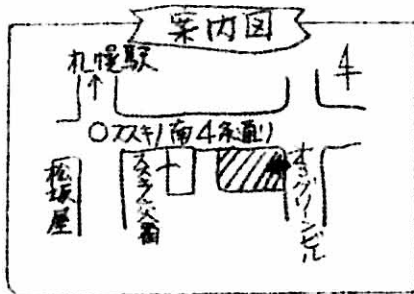 案内図
札幌駅
↑
○ススキノ南4条通り
松坂屋
ススキノ交番
オヨグリーンビル